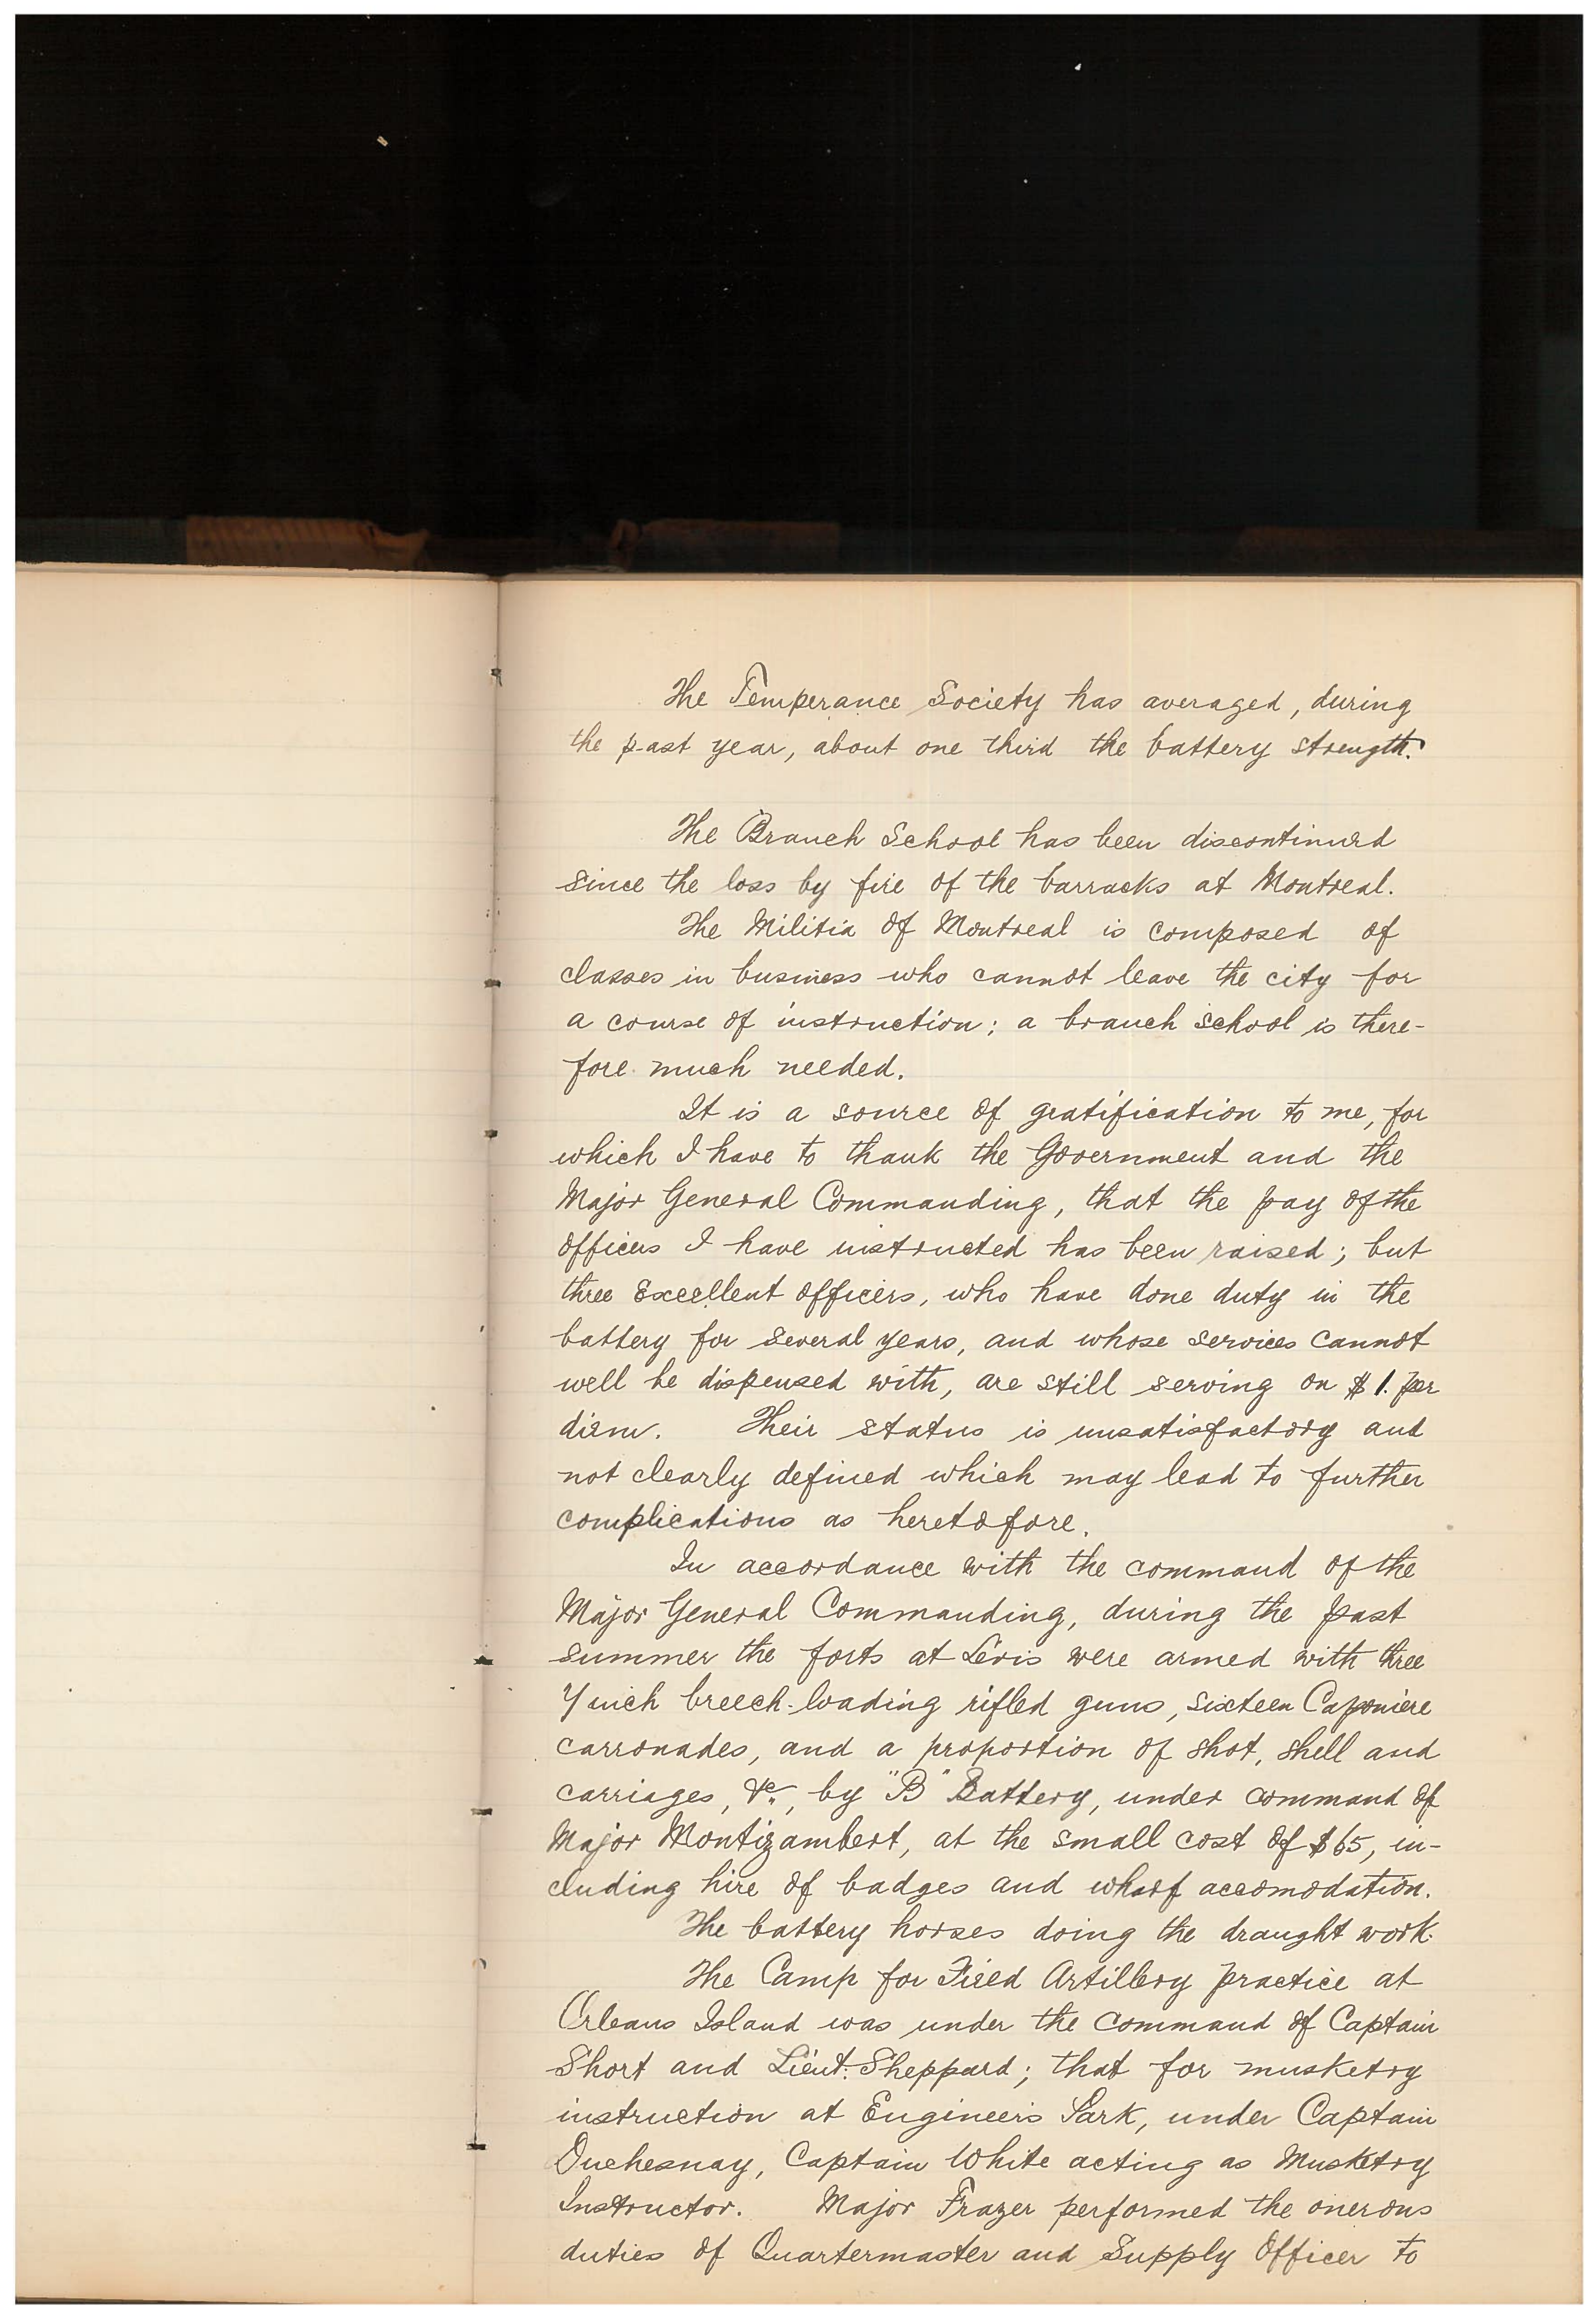 The Temperance Society has averaged, during
the past year, about one third the battery strength.
The Branch School has been discontinued
since the loss by fire of the barracks at Montreal.
The Militia of Montreal is composed of
classes in business who cannot leave the city for
a course of instruction; a branch school is there-
fore much needed.
It is a source of gratification to me, for
which I have to thank the Government and the
Major General Commanding, that the pay of the
officers I have instructed has been raised; but
three excellent officers, who have done duty in the
battery for several years, and whose services cannot
well be dispensed with, are still serving on $1. per
diem. Their status is unsatisfactory and
not clearly defined which may lead to further
complications as heretofore.
In accordance with the command of the
Major General Commanding, during the past
summer the forts at Lévis were armed with three
7 inch breech-loading rifled guns, sixteen Caponiere
carronades, and a proportion of shot, shell and
carriages, &c., by "B" Battery, under command of
Major Montizambert, at the small cost of $65, in-
cluding hire of badges and wharf accomodation.
The battery horses doing the draught work.
The Camp for Field Artillery practice at
Orleans Island was under the command of Captain
Short and Lieut. Sheppard; that for musketry
instruction at Engineers Park, under Captain
Duchesnay, Captain White acting as Musketry
Instructor. Major Frazer performed the onerous
duties of Quartermaster and Supply Officer to